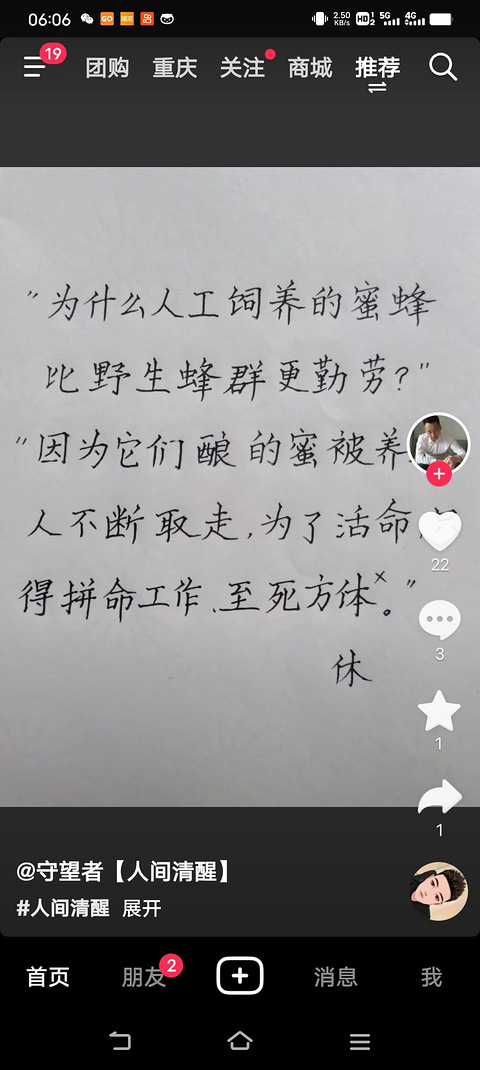 06:06
2.50 KB/s HD 1 2 5G 4G
19
团购 重庆 关注 商城 推荐
"为什么人工饲养的蜜蜂
比野生蜂群更勤劳?"
"因为它们酿的蜜被养
人不断取走,为了活命
得拼命工作、至死方体×。"
休
22
3
1
1
@守望者【人间清醒】
#人间清醒 展开
首页 朋友 2 消息 我